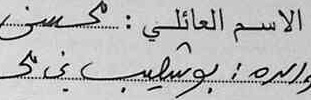 الاسم العائلي : محسن
والده : بوشعيب بن مح